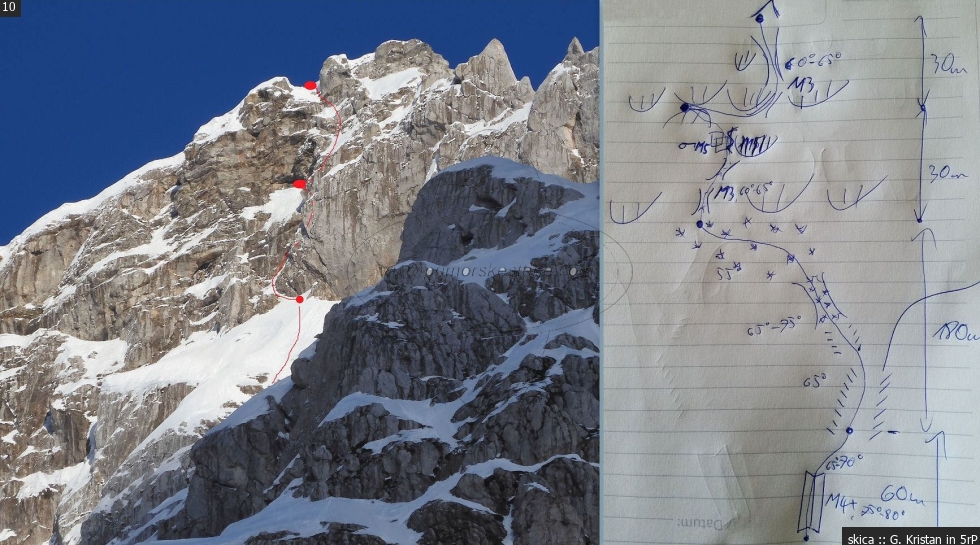 10
60°-65°
M3
30m
M5
30m
M3 60°65°
55°
65°-75°
65°
65°70°
M4+ 75°80°
60m
Datum:
skica :: G. Kristan in 5rP